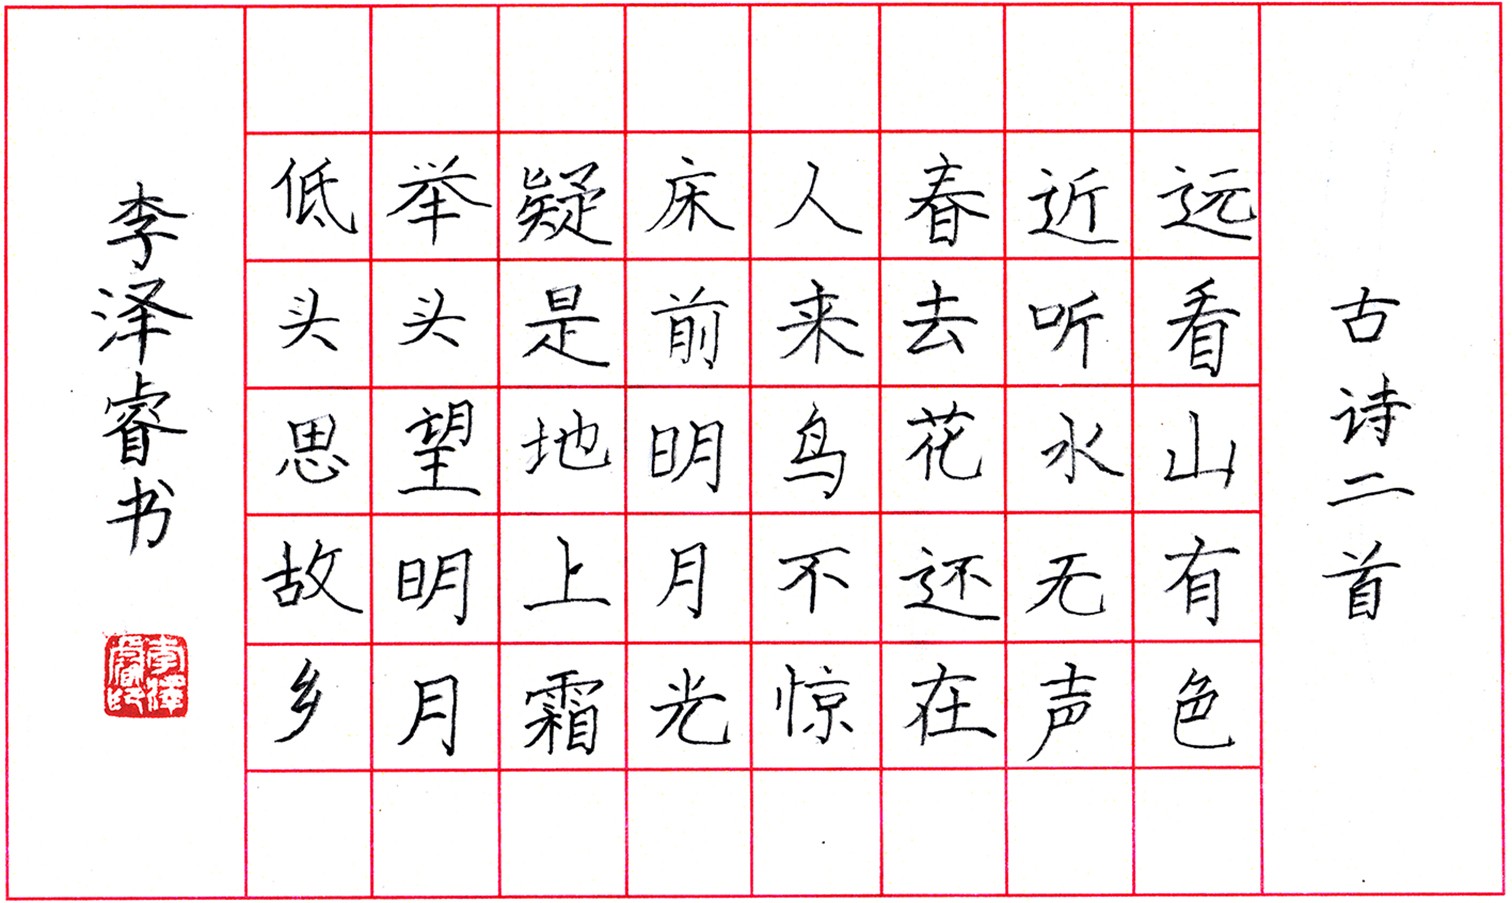 古诗二首
远看山有色
近听水无声
春去花还在
人来鸟不惊
床前明月光
疑是地上霜
举头望明月
低头思故乡
李泽睿书
李泽睿印